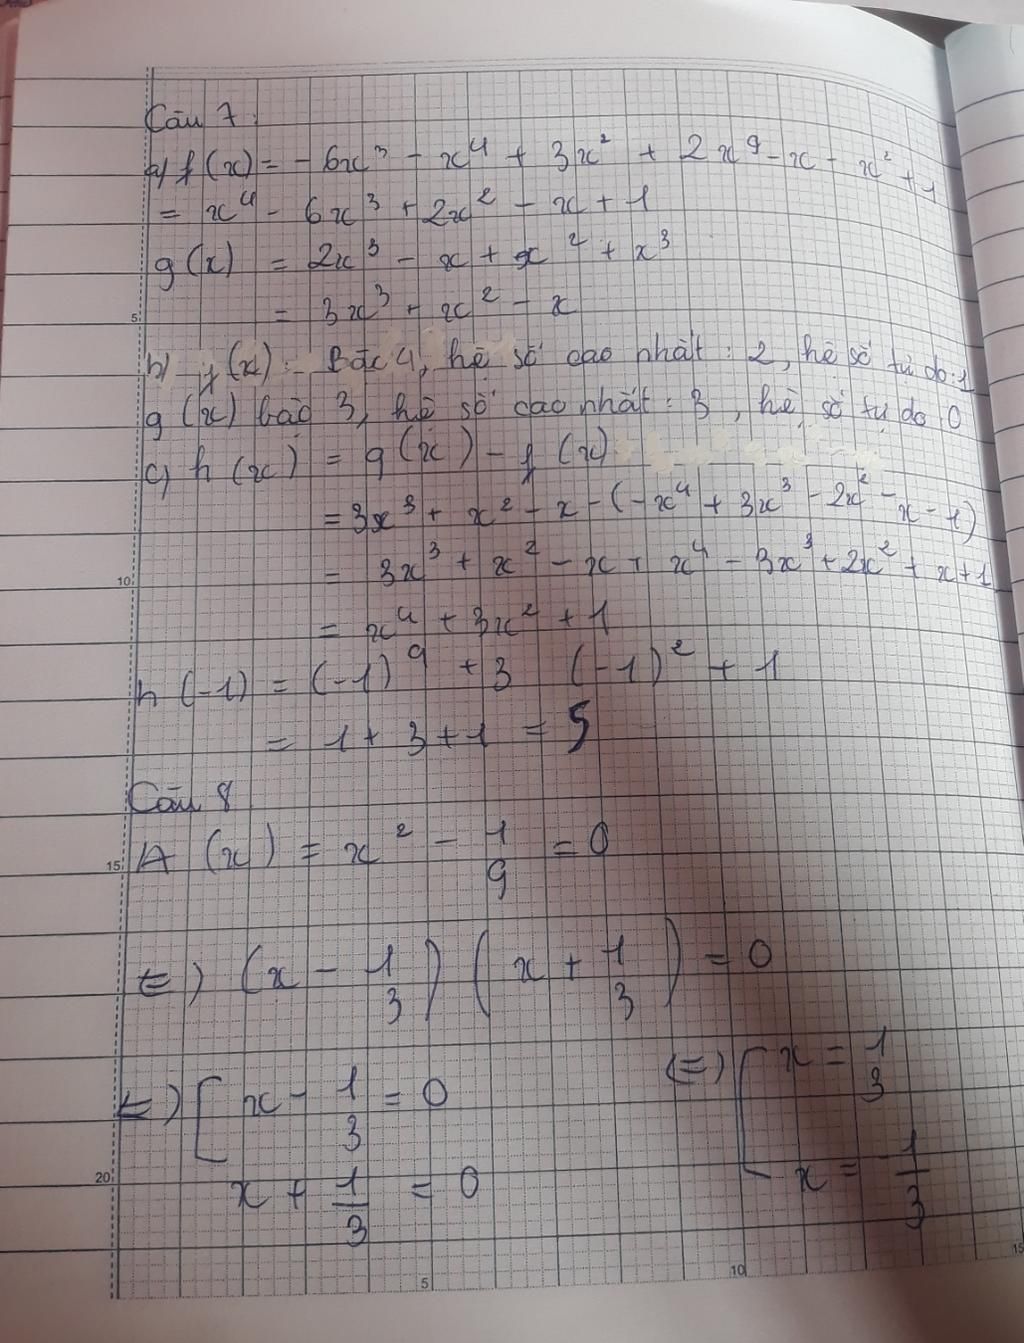 Câu 7:
a) f(x) = - 6x³ - x⁴ + 3x² + 2x⁴ - x - x² + 1
= x⁴ - 6x³ + 2x² - x + 1
g(x) = 2x³ - x + x² + x³
= 3x³ + x² - x
b) f(x): Bậc 4, hệ số cao nhất: 2, hệ số tự do: 1
g(x) bậc 3, hệ số cao nhất: 3, hệ số tự do 0
c) h(x) = g(x) - f(x)
= 3x³ + x² - x - (-x⁴ + 3x³ - 2x² - x - 1)
= 3x³ + x² - x + x⁴ - 3x³ + 2x² + x + 1
= x⁴ + 3x² + 1
h(-1) = (-1)⁴ + 3 (-1)² + 1
= 1 + 3 + 1 = 5
Câu 8
A(x) = x² - 1/9 = 0
(=) (x - 1/3) (x + 1/3) = 0
(=) [ x - 1/3 = 0 (=) [ x = 1/3
x + 1/3 = 0 x = -1/3
5
10
15
20
5
10
15